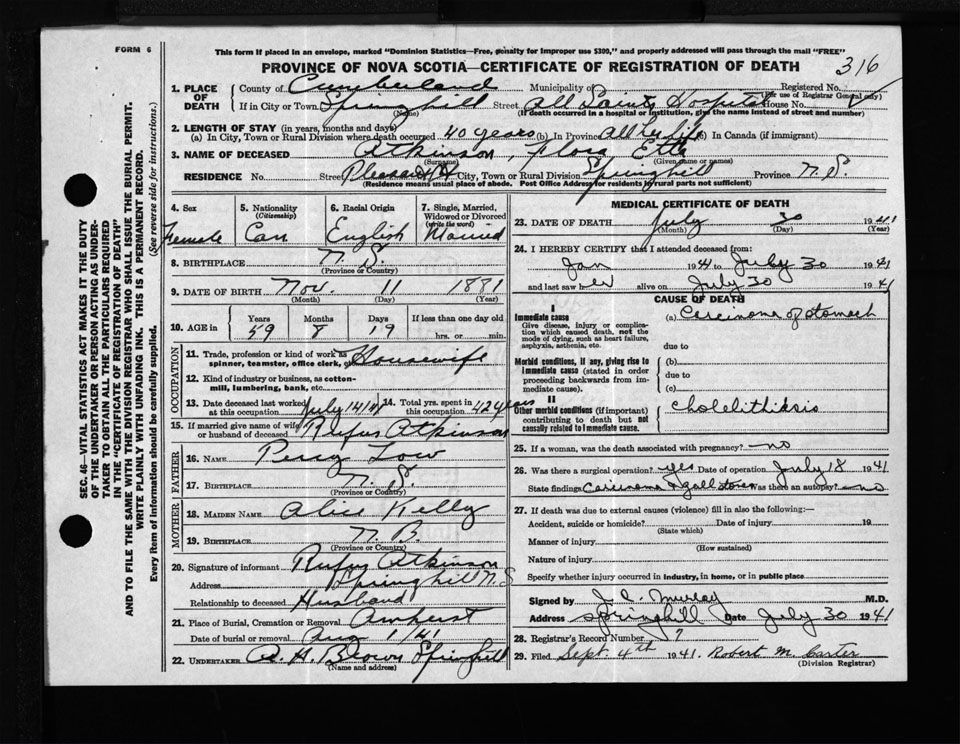 FORM 6
This form if placed in an envelope, marked "Dominion Statistics—Free, penalty for improper use $300," and properly addressed will pass through the mail "FREE"
PROVINCE OF NOVA SCOTIA—CERTIFICATE OF REGISTRATION OF DEATH
316
1. PLACE OF DEATH County of Cumberland Municipality of Registered No. (For use of Registrar General only)
If in City or Town Springhill (Name) Street All Saints Hospital House No.
(If death occurred in a hospital or institution, give the name instead of street and number)
2. LENGTH OF STAY (in years, months and days)
(a) In City, Town or Rural Division where death occurred 40 years (b) In Province All her life (c) In Canada (if immigrant)
3. NAME OF DECEASED Atkinson, Flora Etta
(Surname) (Given name or names)
RESIDENCE No. Street Pleasant St City, Town or Rural Division Springhill Province N.S.
(Residence means usual place of abode. Post Office Address for residents in rural parts not sufficient)
4. Sex Female
5. Nationality (Citizenship) Can
6. Racial Origin English
7. Single, Married, Widowed or Divorced (write the word) Married
8. BIRTHPLACE N.S.
(Province or Country)
9. DATE OF BIRTH Nov. 11 1881
(Month) (Day) (Year)
10. AGE in Years 59 Months 8 Days 19 If less than one day old hrs. or min.
OCCUPATION
11. Trade, profession or kind of work as spinner, teamster, office clerk, etc. Housewife
12. Kind of industry or business, as cotton-mill, lumbering, bank, etc.
13. Date deceased last worked at this occupation July 14/41 14. Total yrs. spent in this occupation 42 years
15. If married give name of wife or husband of deceased Rufus Atkinson
FATHER
16. NAME Percy Low
17. BIRTHPLACE N.S.
(Province or Country)
MOTHER
18. MAIDEN NAME Alice Kelly
19. BIRTHPLACE N.B.
(Province or Country)
20. Signature of informant Rufus Atkinson
Address Springhill N.S
Relationship to deceased Husband
21. Place of Burial, Cremation or Removal Amherst
Date of burial or removal Aug 1/41
22. UNDERTAKER A. H. Brown Springhill
(Name and address)
MEDICAL CERTIFICATE OF DEATH
23. DATE OF DEATH July 30 1941
(Month) (Day) (Year)
24. I HEREBY CERTIFY that I attended deceased from:
Jan 1941 to July 30 1941
and last saw her alive on July 30 1941
CAUSE OF DEATH
I
Immediate cause (a) Carcinoma of stomach
Give disease, injury or complication which caused death, not the mode of dying, such as heart failure, asphyxia, asthenia, etc.
due to
Morbid conditions, if any, giving rise to immediate cause (stated in order proceeding backwards from immediate cause). (b)
due to
(c)
II
Other morbid conditions (if important) contributing to death but not causally related to immediate cause. Cholelithiasis
25. If a woman, was the death associated with pregnancy? no
26. Was there a surgical operation? yes Date of operation July 18 1941
State findings Carcinoma & gall stones Was there an autopsy? no
27. If death was due to external causes (violence) fill in also the following:—
Accident, suicide or homicide? Date of injury 19
(State which)
Manner of injury
(How sustained)
Nature of injury
Specify whether injury occurred in industry, in home, or in public place
Signed by J. C. Murray M.D.
Address Springhill Date July 30 1941
28. Registrar's Record Number 7
29. Filed Sept. 4th 1941. Robert M. Carter
(Division Registrar)
SEC. 46—VITAL STATISTICS ACT MAKES IT THE DUTY
OF THE UNDERTAKER OR PERSON ACTING AS UNDERTAKER TO OBTAIN ALL THE PARTICULARS REQUIRED
IN THE "CERTIFICATE OF REGISTRATION OF DEATH"
AND TO FILE THE SAME WITH THE DIVISION REGISTRAR WHO SHALL ISSUE THE BURIAL PERMIT.
WRITE PLAINLY WITH UNFADING INK. THIS IS A PERMANENT RECORD.
Every item of information should be carefully supplied. (See reverse side for instructions.)